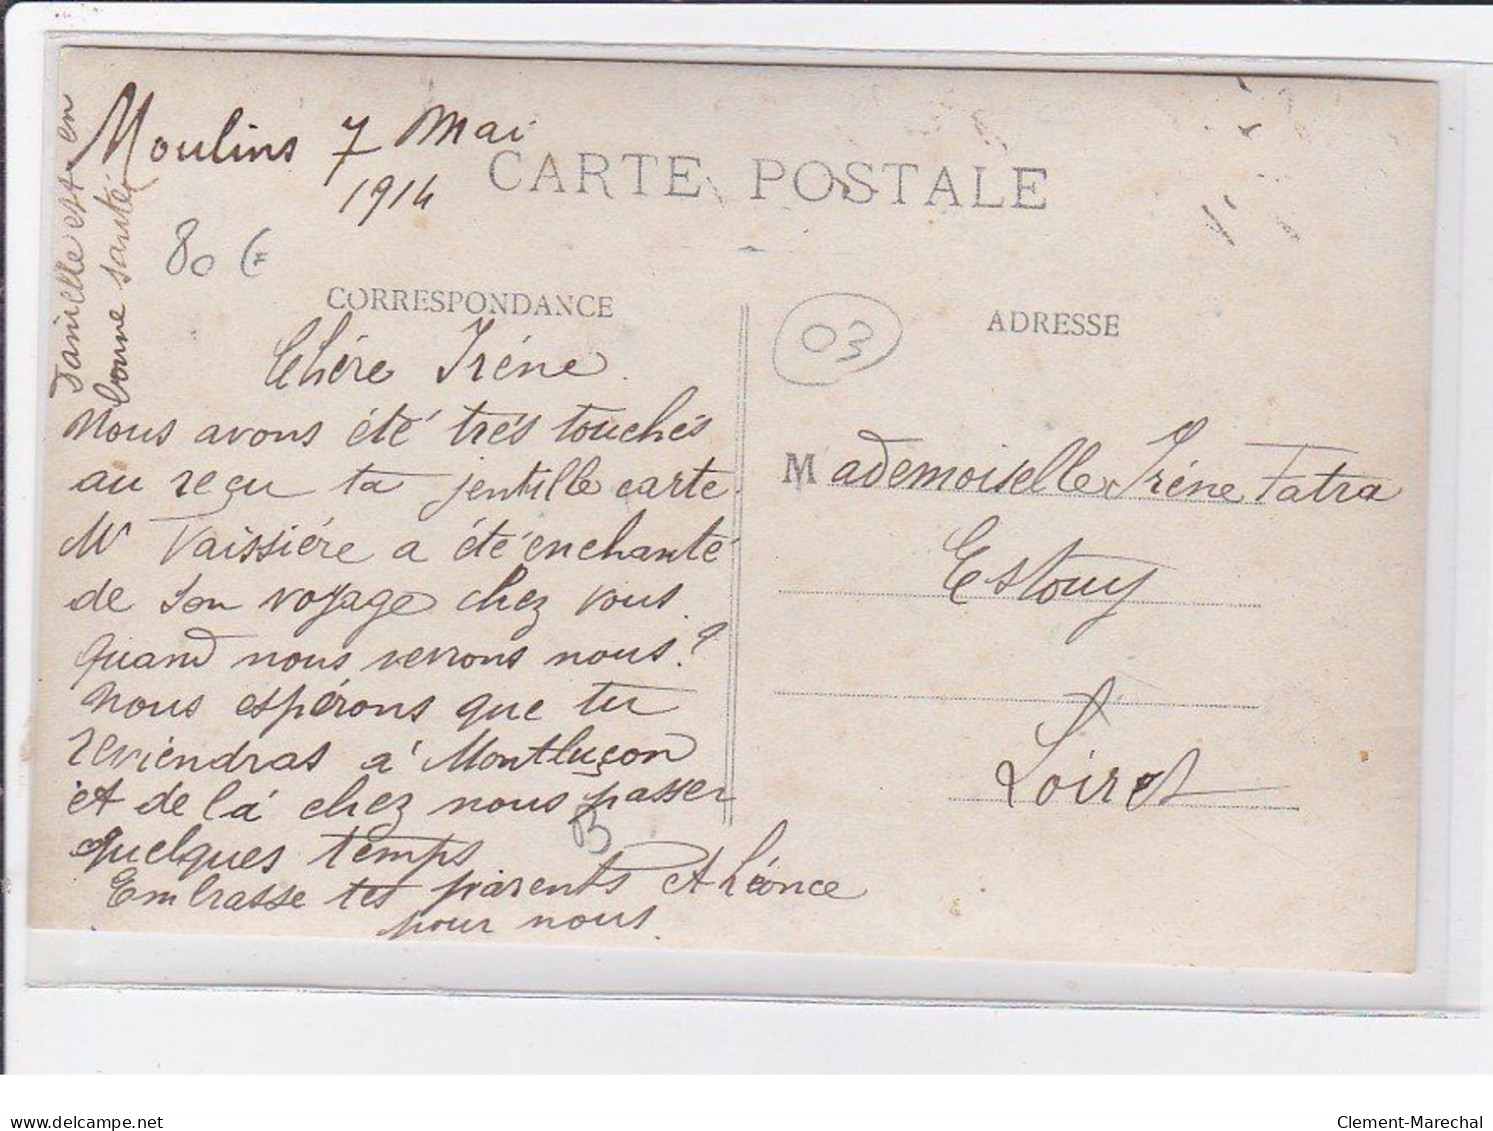 Moulins 7 Mai
1914
CARTE POSTALE
80 €
CORRESPONDANCE
Chére Iréne.
Nous avons été trés touchés
au reçu ta jentille carte.
Mr Vaissiére a été enchanté
de son voyage chez vous.
quand nous verrons nous?
Nous espérons que tu
reviendras á Montluçon
et de lá chez nous passer
quelques temps
Embrasse tes parents et Léonce
pour nous.
B
et en
bonne santé
03
ADRESSE
Mademoiselle Iréne Fatra
Estouy
Loiret
delcampe.net
Clement-Marechal